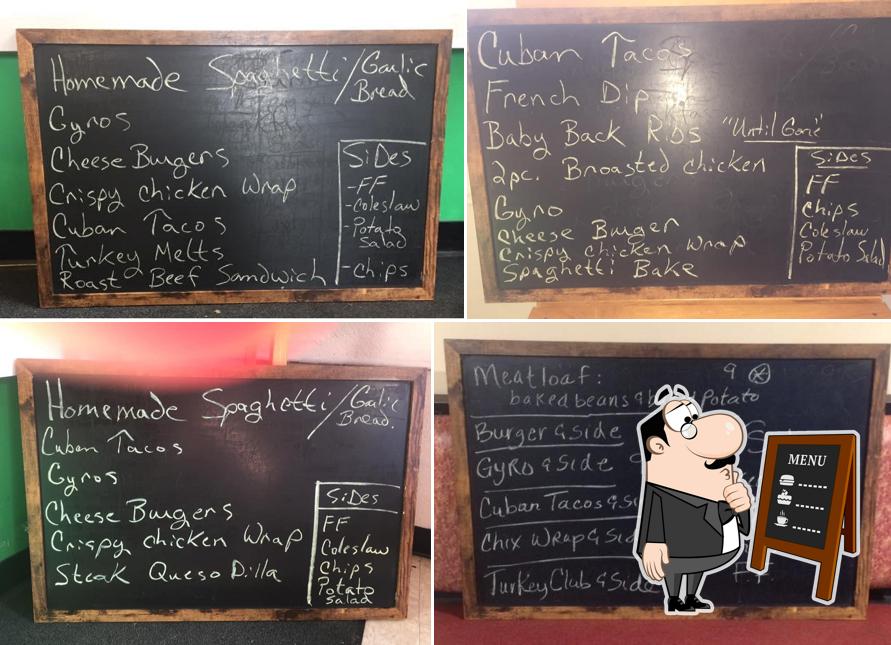 Homemade Spaghetti / Garlic
Bread
Gyros
Cheese Burgers
Crispy chicken Wrap
Cuban Tacos
Turkey Melts
Roast Beef Sandwich
SiDes
-FF
-Coleslaw
-Potato
salad
-Chips
Cuban Tacos
French Dip
Baby Back Ribs "Until Gone"
2pc. Broasted chicken
Gyro
Cheese Burger
Crispy chicken Wrap
Spaghetti Bake
SiDes
FF
Chips
Coleslaw
Potato Salad
Homemade Spaghetti / Garlic
Bread.
Cuban Tacos
Gyros
Cheese Burgers
Crispy chicken Wrap
Steak QuesoDilla
SiDes
FF
Coleslaw
Chips
Potato
salad
Meatloaf:
baked beans & Potato
Burger & Side
GyRo & Side
Cuban Tacos &
Chix WRap &
Turkey Club & Side
F.F.
MENU